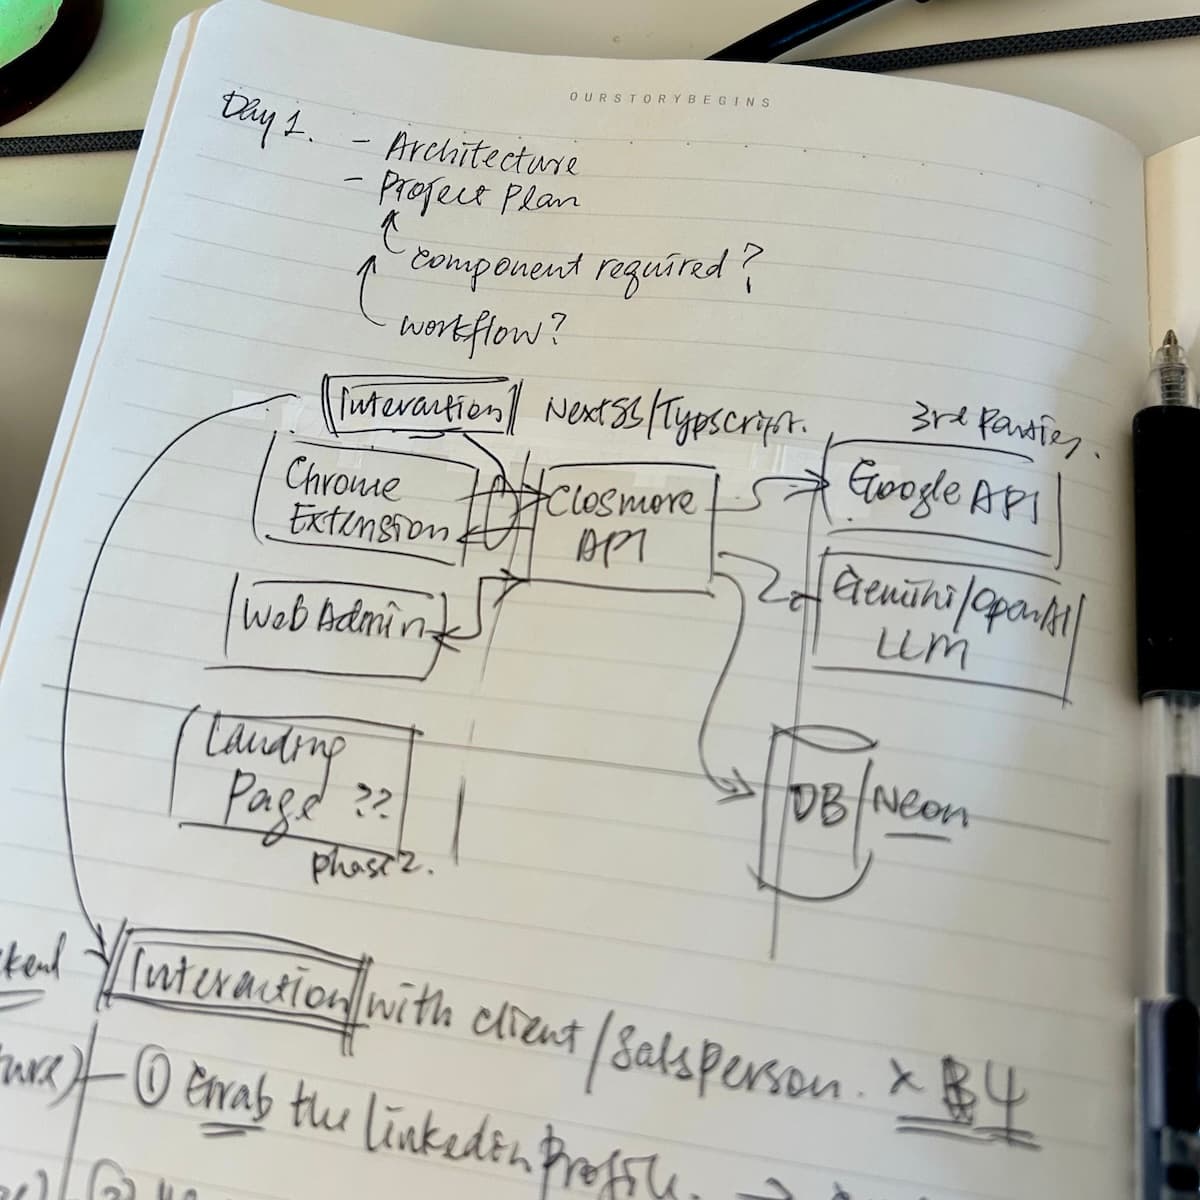 OURSTORYBEGINS
Day 1.
- Architecture
- Project Plan
component required?
workflow?
Interaction
NextJS/Typscript.
3rd Parties.
Chrome
Extension
Closmore
API
Google API
Web Admin
Gemini/OpenAI
LLM
Landing
Page ??
phase 2.
DB/Neon
Interaction with client/Salsperson. x 4
① Grab the Linkedin Profile.
②